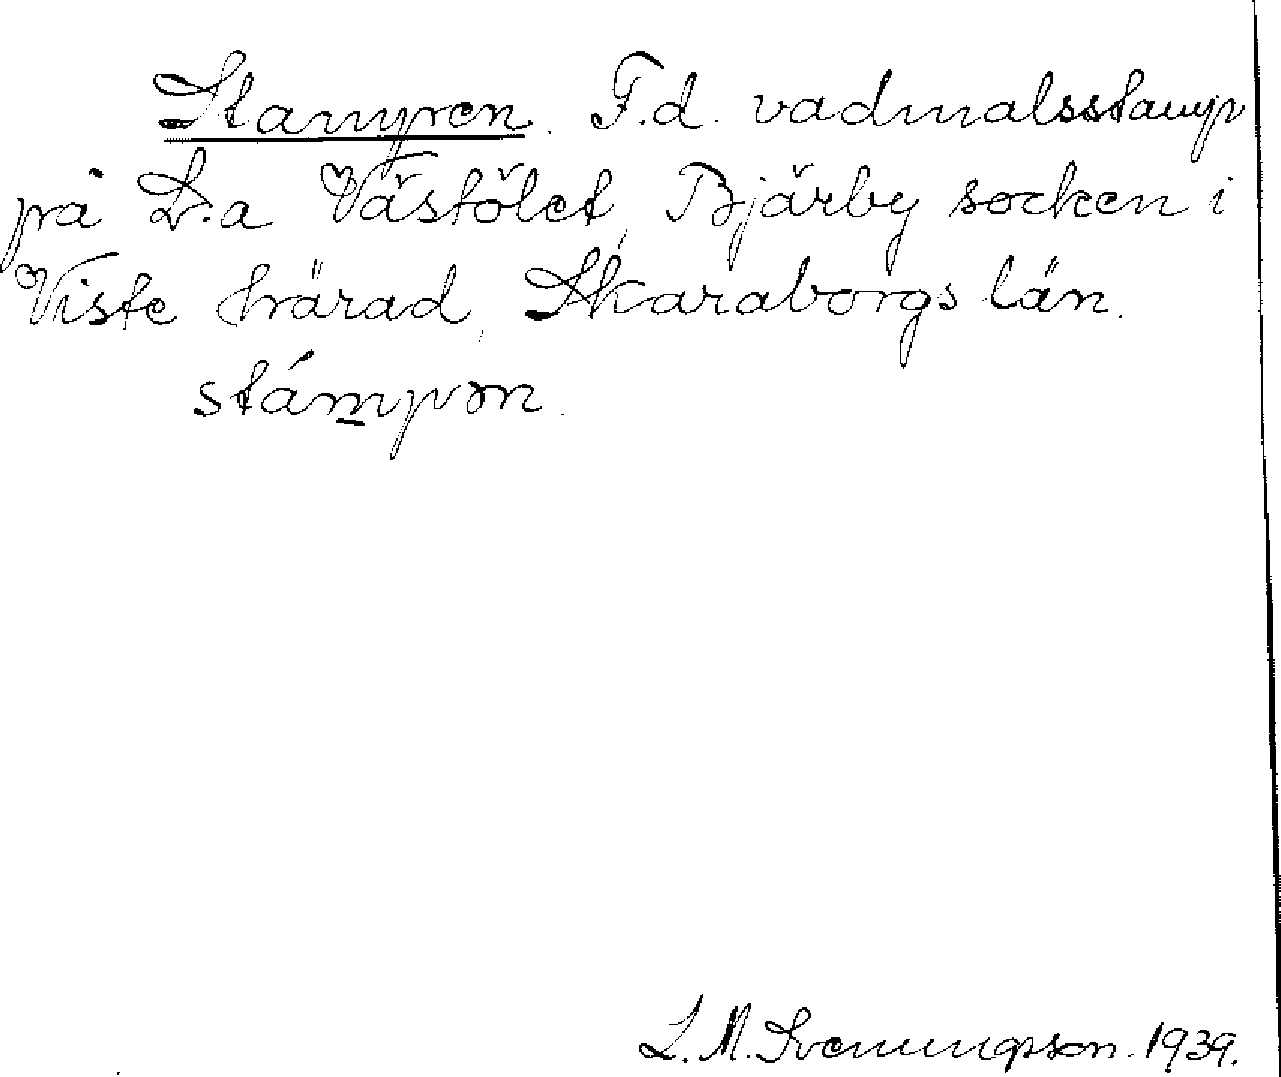 Stampen. F.d. vadmalsstamp
på L:a Västölet, Bjärby socken i
Viste härad, Skaraborgs län.
stámpən.
L. M. Svenungsson. 1939.